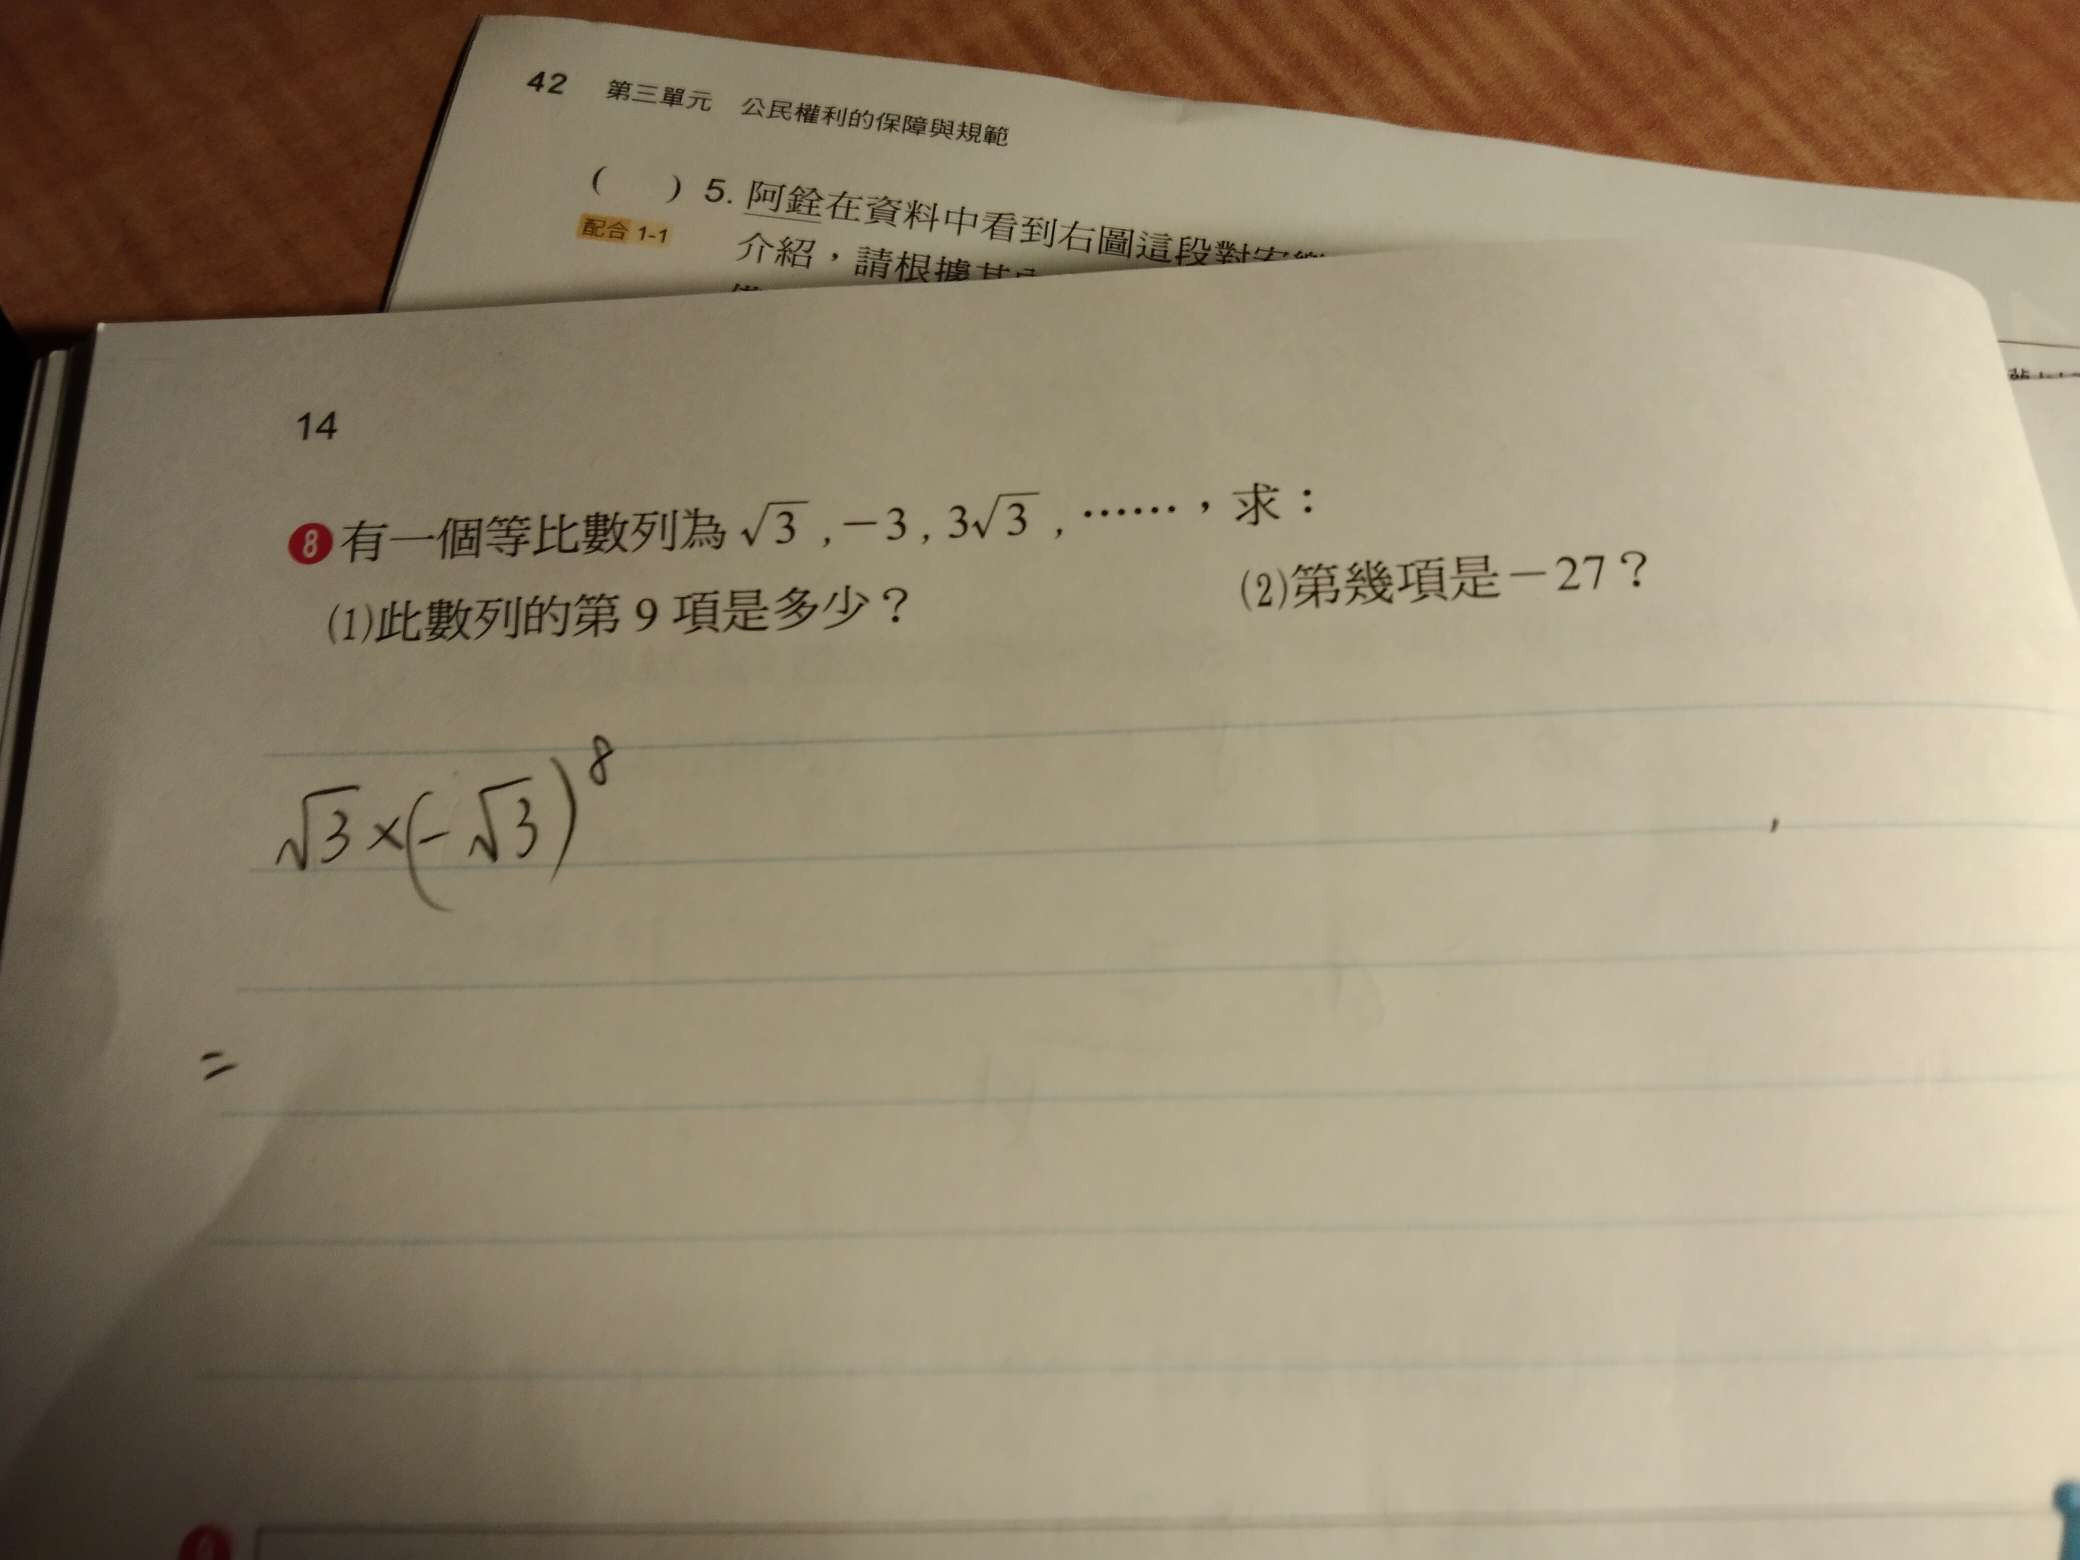 42 第三單元 公民權利的保障與規範
( ) 5. 阿銓在資料中看到右圖這段對
配合 1-1
介紹，請根據其
14
8 有一個等比數列為 √3 , -3 , 3√3 , ……，求：
(1)此數列的第 9 項是多少？ (2)第幾項是-27？
√3×(-√3)^8
=
9